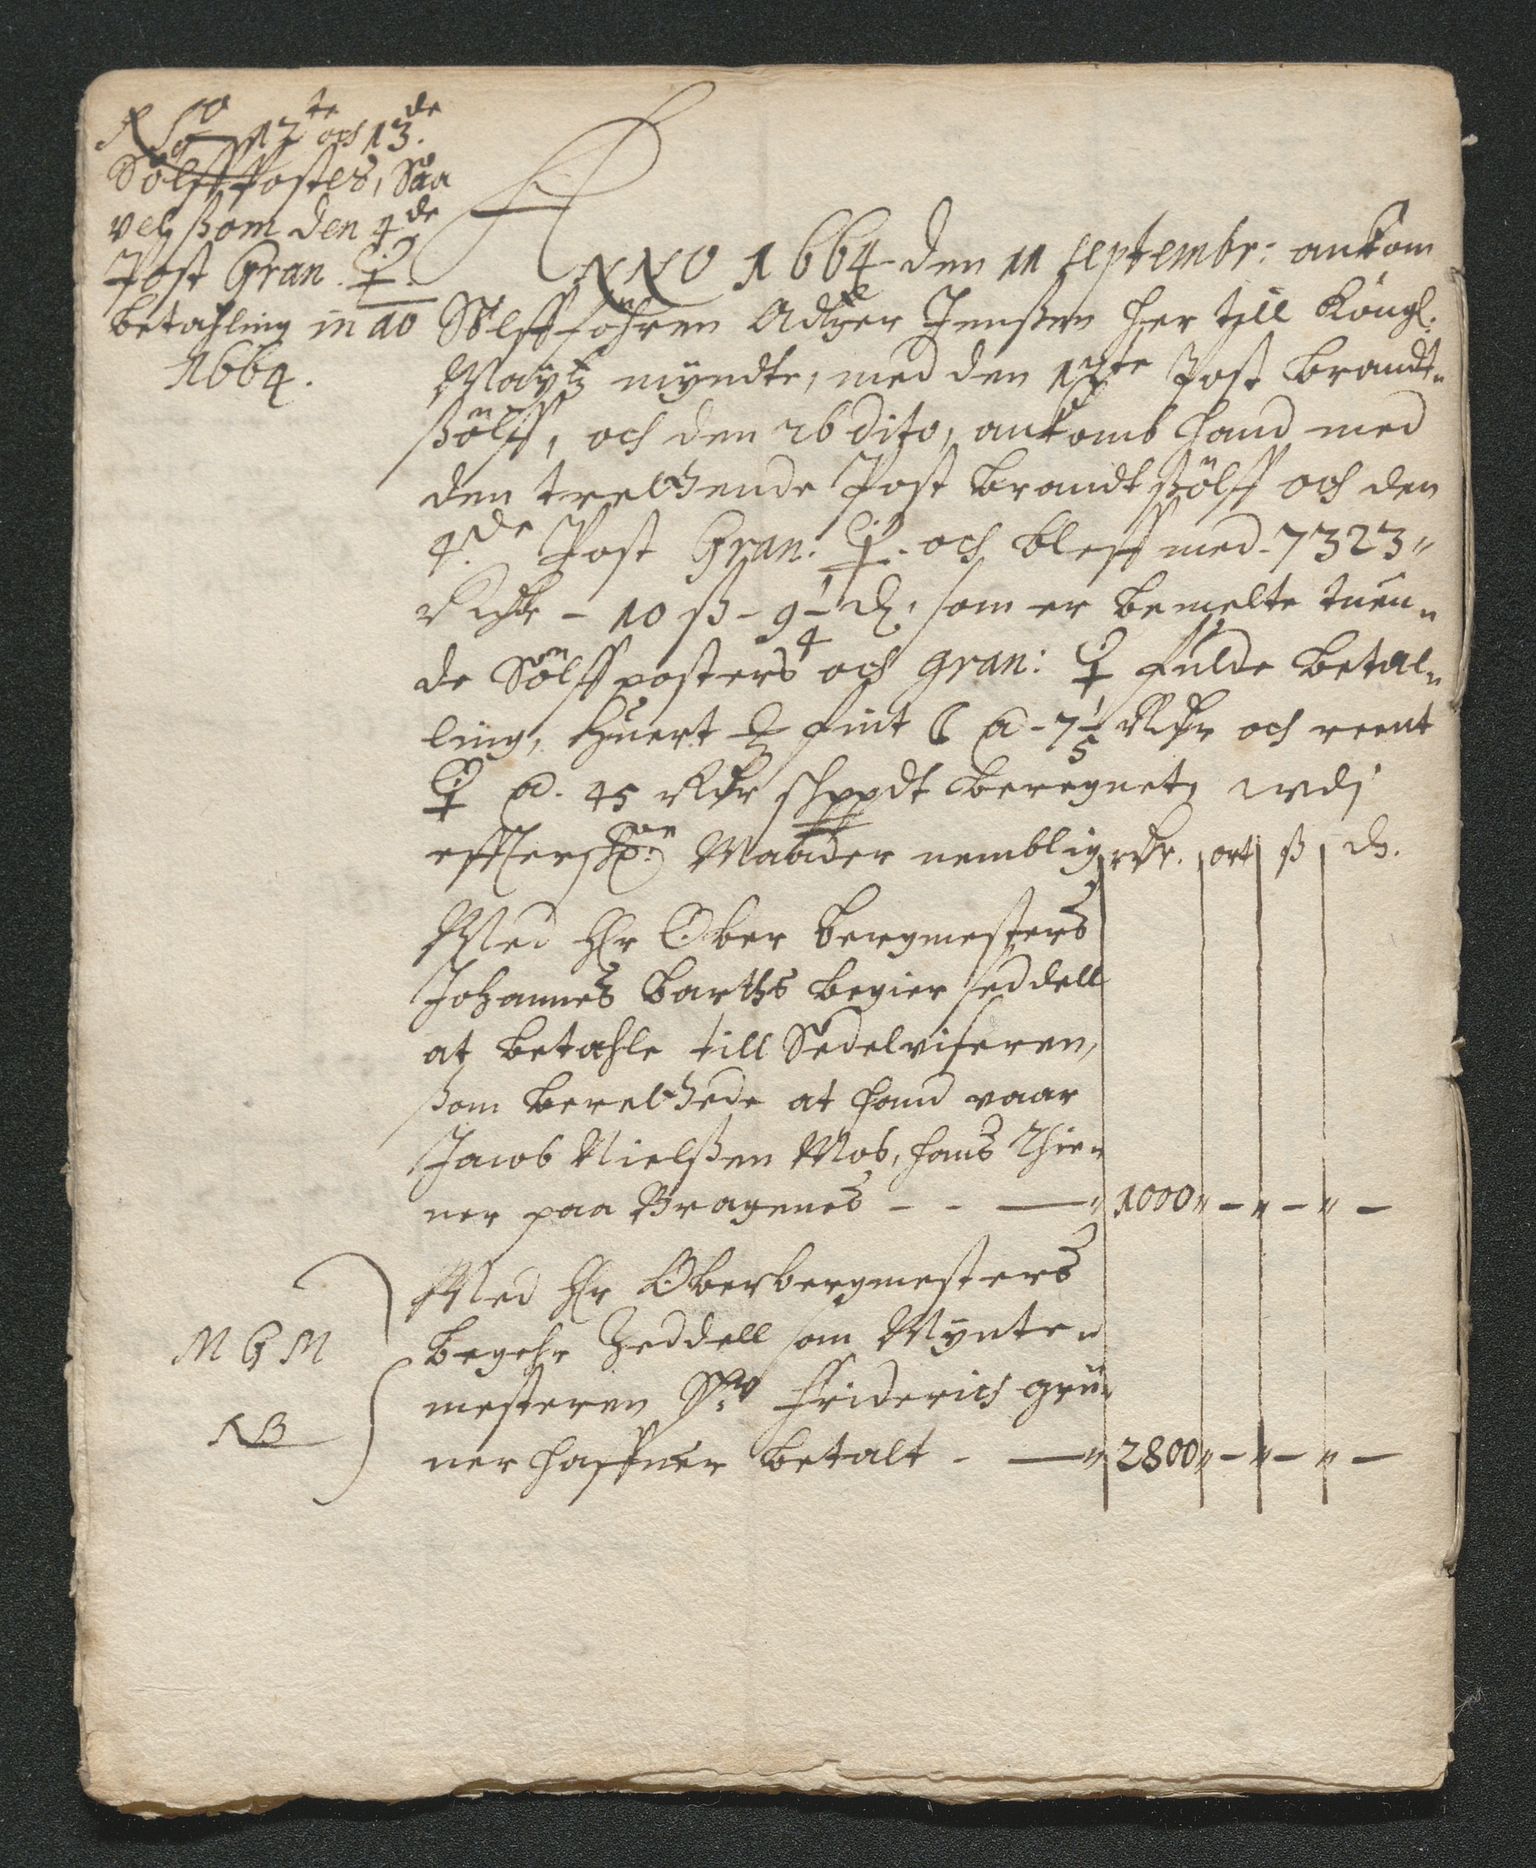 No 12te och 13de.
Sölffpostes, Saa
vel ßom den 4de
Post Gran. ♀.
betahling in ao
1664.
ANNO 1664 den 11 septembr: ankom
Sölfføhren Adtzer Jenßen her till Kongl:
Maÿtz myndte, med den 12te Post brandt-
ßölff, och den 26 dito, ankomb hand med
den trelthende Post brandt ßölff och den
4de Post Gran: ♀. och bleff med - 7323 "
Rdr - 10 ß - 9 1/4 d. som er bemelte tuen-
de Sölff posters och gran: ♀ fulde betal-
ling, huert fint a - 7 1/5 Rdr och reent
♀ a. 45 Rdr schppdt beregnet, udj
effterschne Maader nemblig rdr. ort ß d.
Med Hr Ober bergmesters
Johannes Barths begier seddell
at betahle till Sedelviseren,
ßom berethede at hand vaar
Jacob Nielßen Mos, hans thie-
ner paa Bragenes - - — " 1000 " - " - " -
Med Hr Oberbergmesters
begehr Zeddell som Mÿnte-
mesteren Sr Friderich grü-
ner haffuer betalt - — " 2800 " - " - " -
M G M
NB